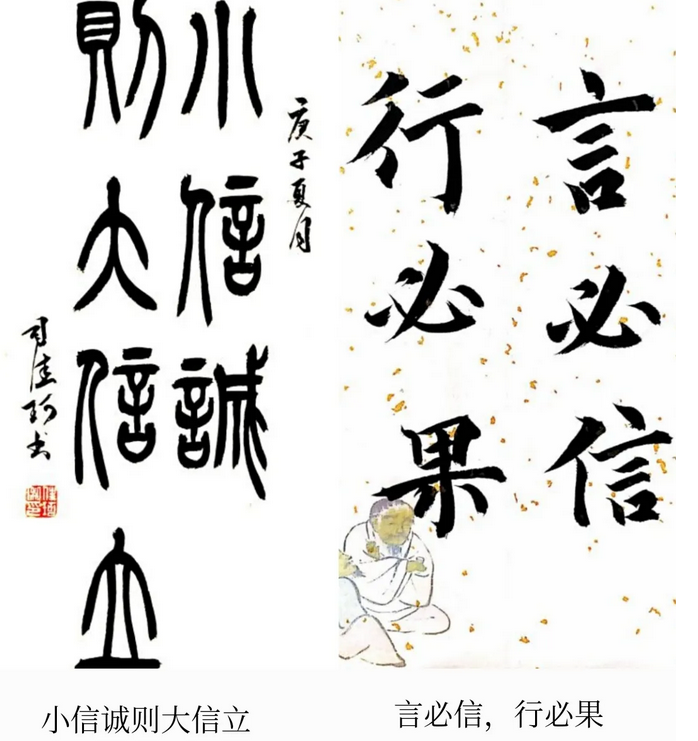 庚子夏月
小信誠
則大信立
言必信
行必果
小信诚则大信立
言必信，行必果